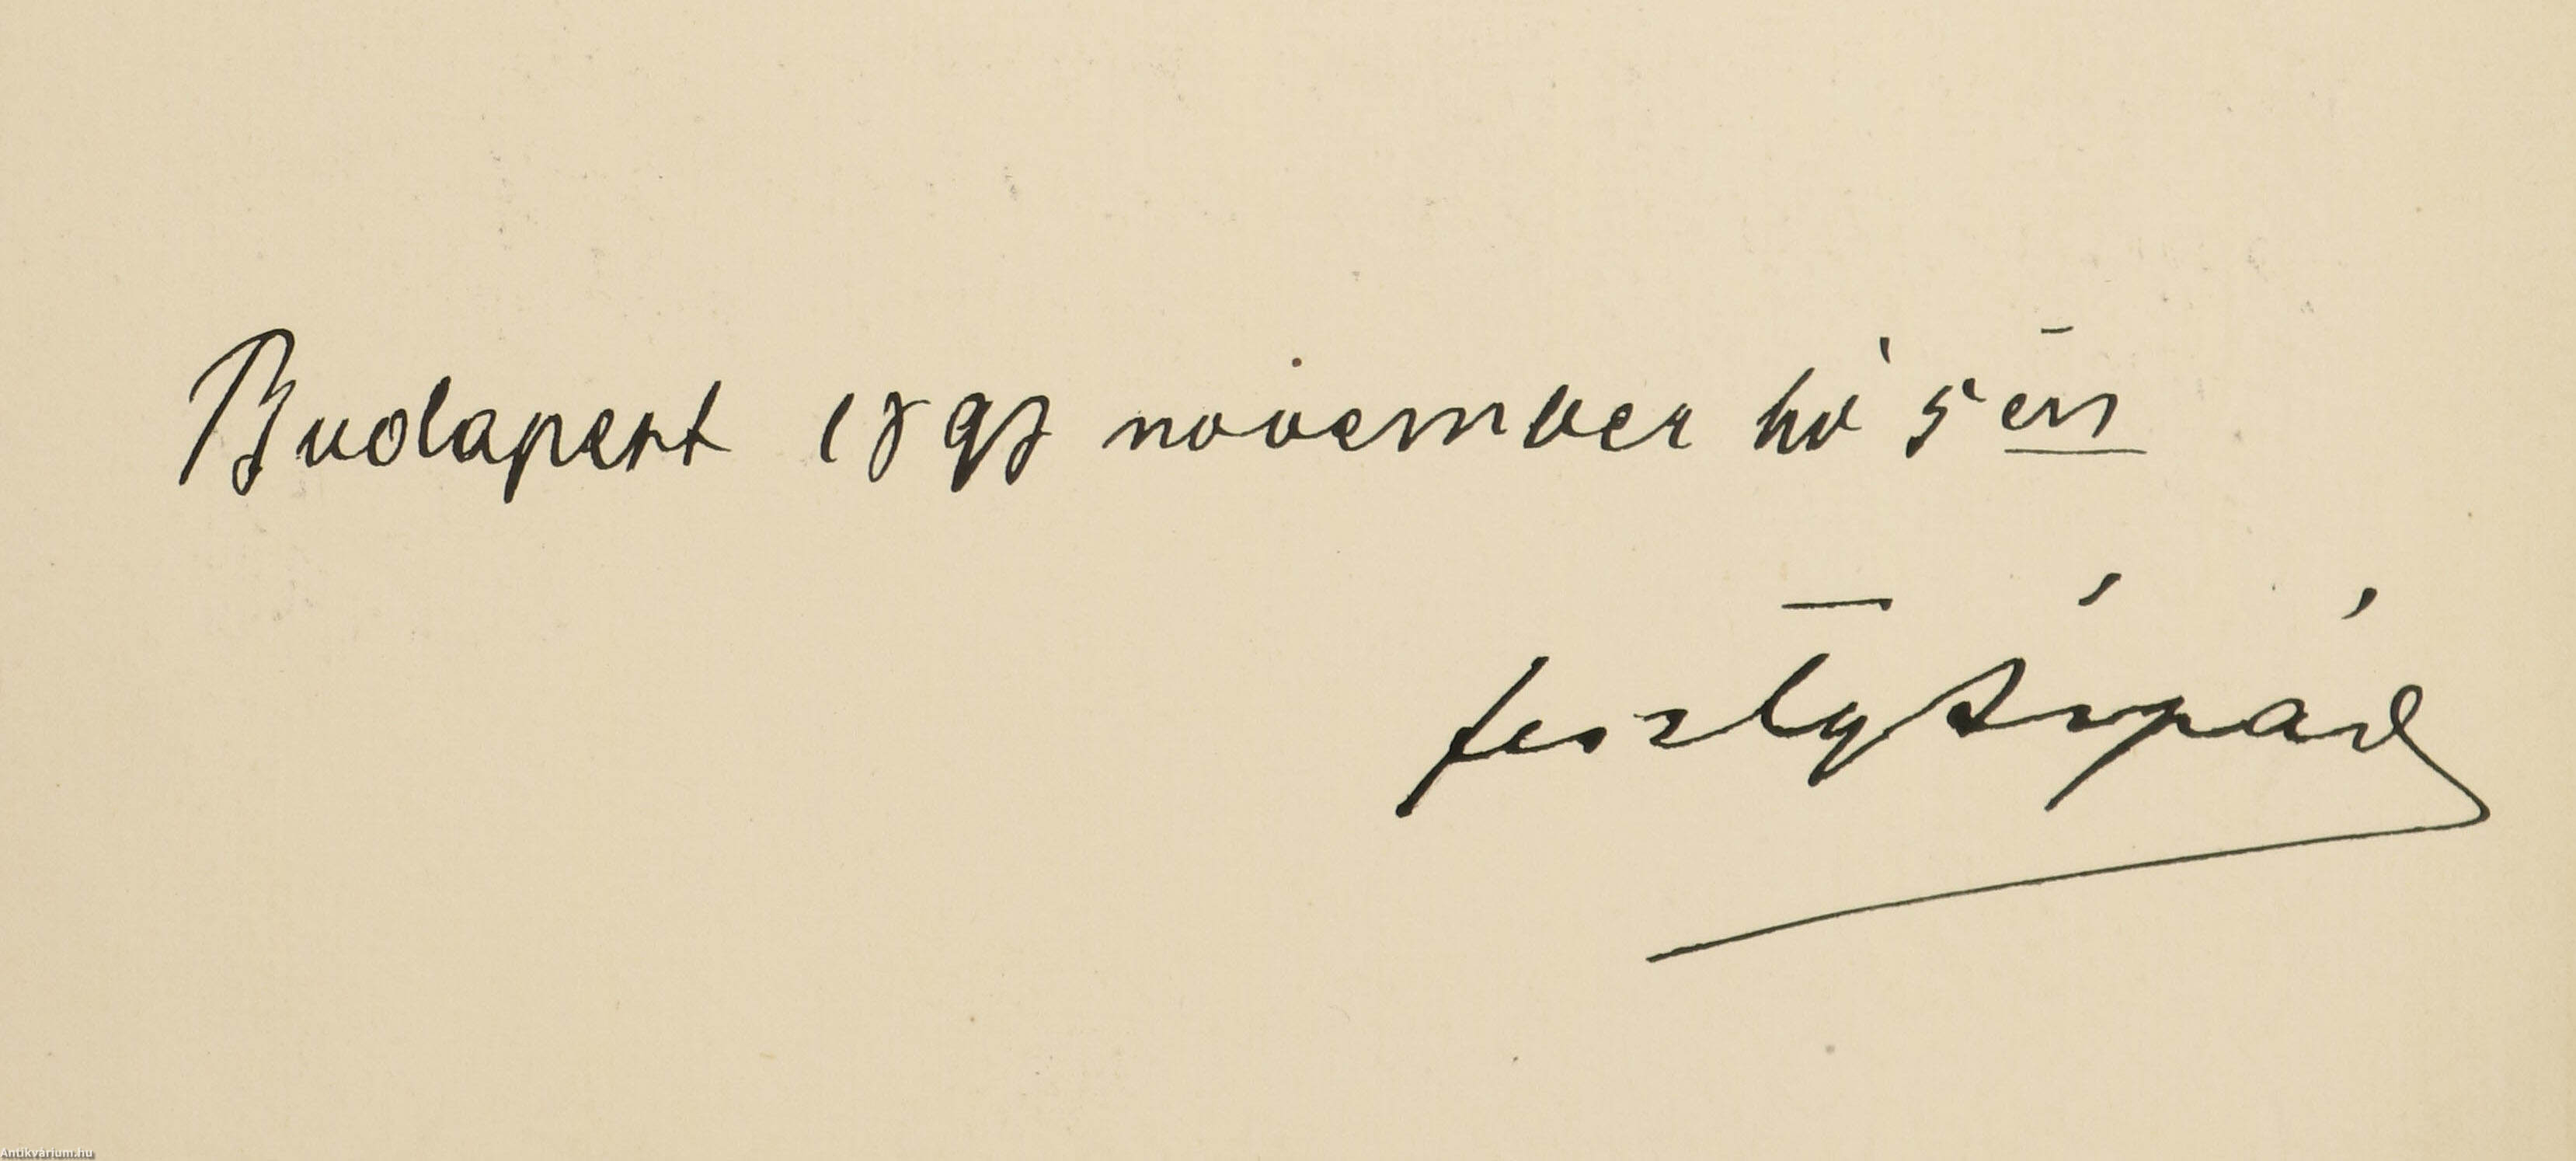 Budapest 1898 november hó 5 én
Feszty Árpád
Antikvárium.hu